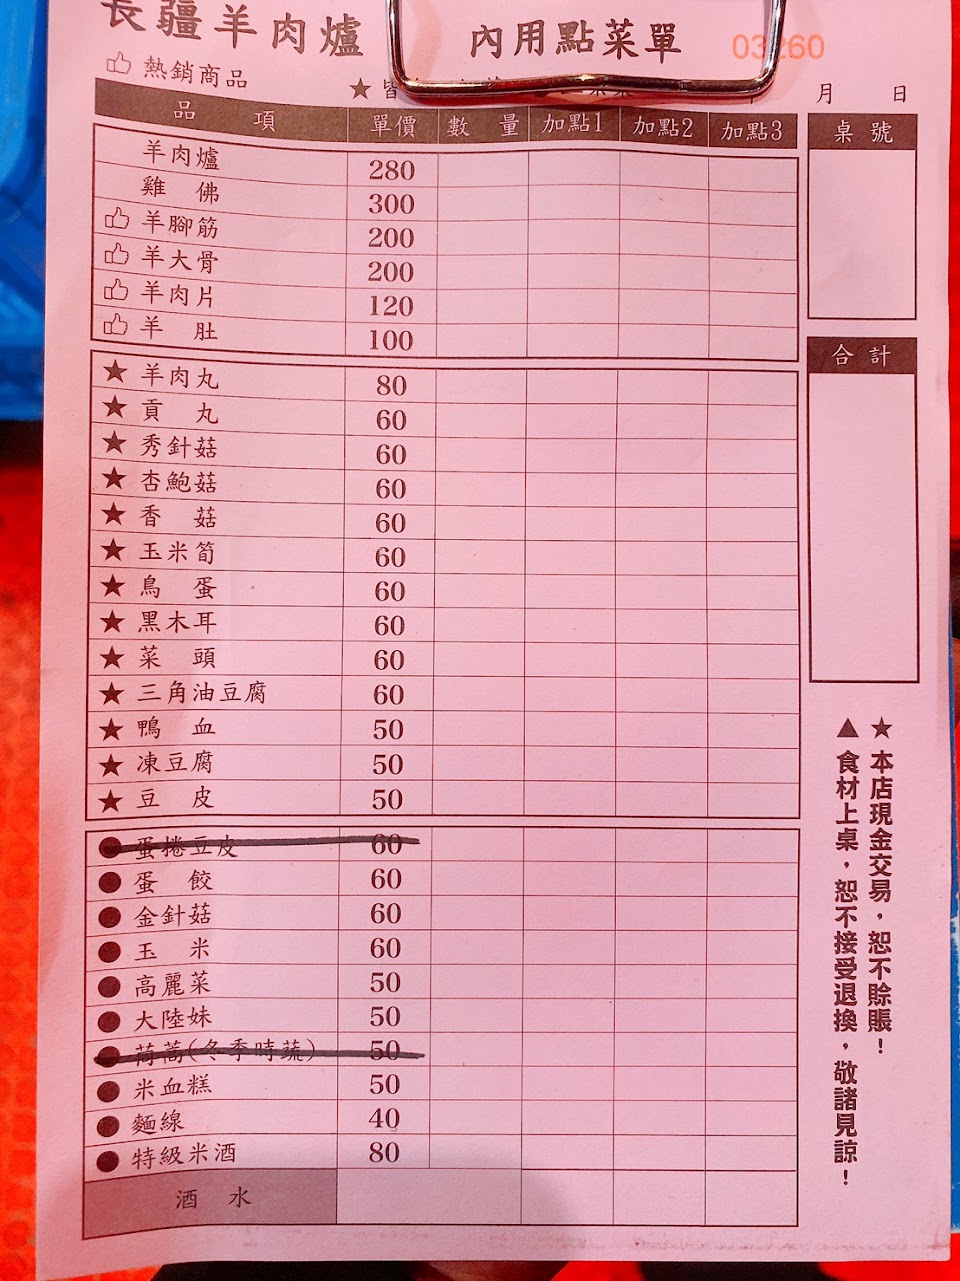 長疆羊肉爐
內用點菜單
熱銷商品
★皆
月 日
品 項 單價 數 量 加點1 加點2 加點3
羊肉爐 280
雞 佛 300
羊腳筋 200
羊大骨 200
羊肉片 120
羊 肚 100
★ 羊肉丸 80
★ 貢 丸 60
★ 秀針菇 60
★ 杏鮑菇 60
★ 香 菇 60
★ 玉米筍 60
★ 鳥 蛋 60
★ 黑木耳 60
★ 菜 頭 60
★ 三角油豆腐 60
★ 鴨 血 50
★ 凍豆腐 50
★ 豆 皮 50
● 蛋捲豆皮 60
● 蛋 餃 60
● 金針菇 60
● 玉 米 60
● 高麗菜 50
● 大陸妹 50
● 茼蒿(冬季時蔬) 50
● 米血糕 50
● 麵線 40
● 特級米酒 80
酒 水
桌 號
合 計
★ 本店現金交易，恕不賒賬！
▲ 食材上桌，恕不接受退換，敬諸見諒！